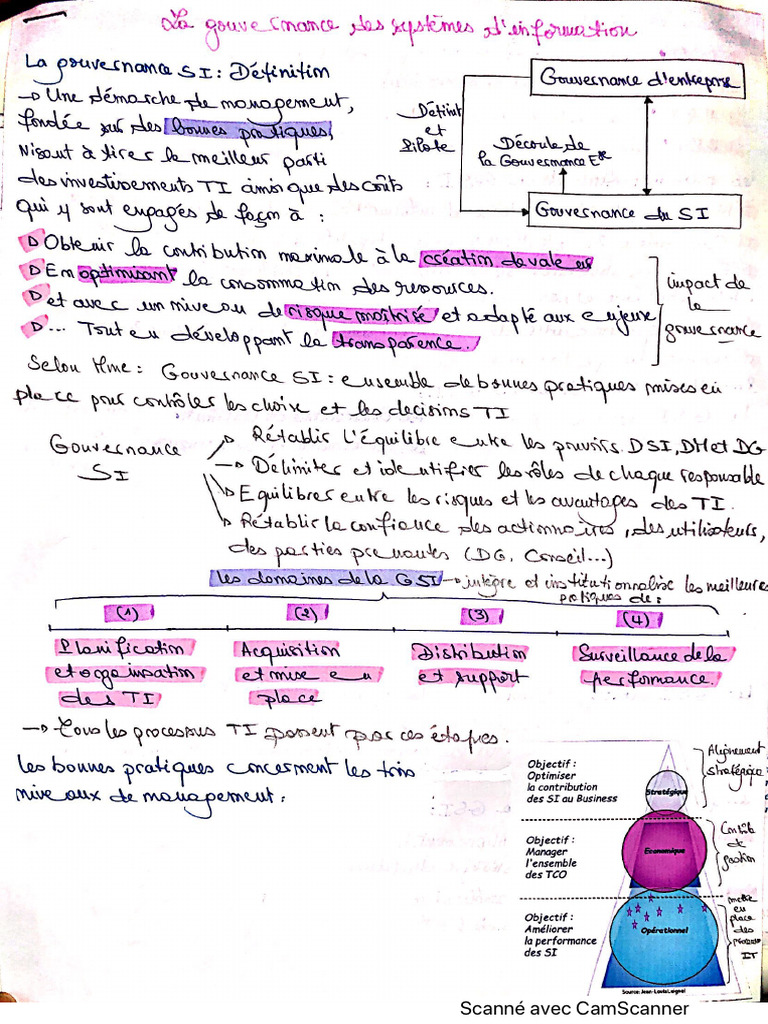 La gouvernance des systèmes d'information
La gouvernance SI : Définition
→ Une démarche de management,
fondée sur des bonnes pratiques,
visant à tirer le meilleur parti
des investissements TI ainsi que des coûts
qui y sont engagés de façon à :
Gouvernance d'entreprise
Définit
et
Pilote
Découle de
la Gouvernance Ese
Gouvernance du SI
D Obtenir la contribution maximale à la création de valeur
D En optimisant la consommation des ressources.
D et avec un niveau de risque maîtrisé et adapté aux enjeux
D ... Tout en développant la transparence.
impact de
la
gouvernance
Selon Mme : Gouvernance SI : ensemble de bonnes pratiques mises en
place pour contrôler les choix et les decisions TI
Gouvernance
SI
Rétablir l'Équilibre entre les pouvoirs DSI, DM et DG
→ Délimiter et identifier les rôles de chaque responsable
Equilibrer entre les risques et les avantages des TI.
Rétablir la confiance des actionnaires, des utilisateurs,
des parties prenantes (DG, Conseil...)
les domaines de la GSI → intègre et institutionnalise les meilleures
pratiques de :
(1) (2) (3) (4)
Planification
et organisation
des TI
Acquisition
et mise en
place
Distribution
et support
Surveillance de la
performance.
→ Tous les processus TI passent par ces étapes.
les bonnes pratiques concernent les trois
niveaux de management :
Objectif :
Optimiser
la contribution
des SI au Business
Stratégique
Alignement
stratégique
Objectif :
Manager
l'ensemble
des TCO
Economique
Contrôle
de
gestion
Objectif :
Améliorer
la performance
des SI
Opérationnel
mettre
en
place
des
process
IT
Source: Jean-Louis Leignel
Scanné avec CamScanner